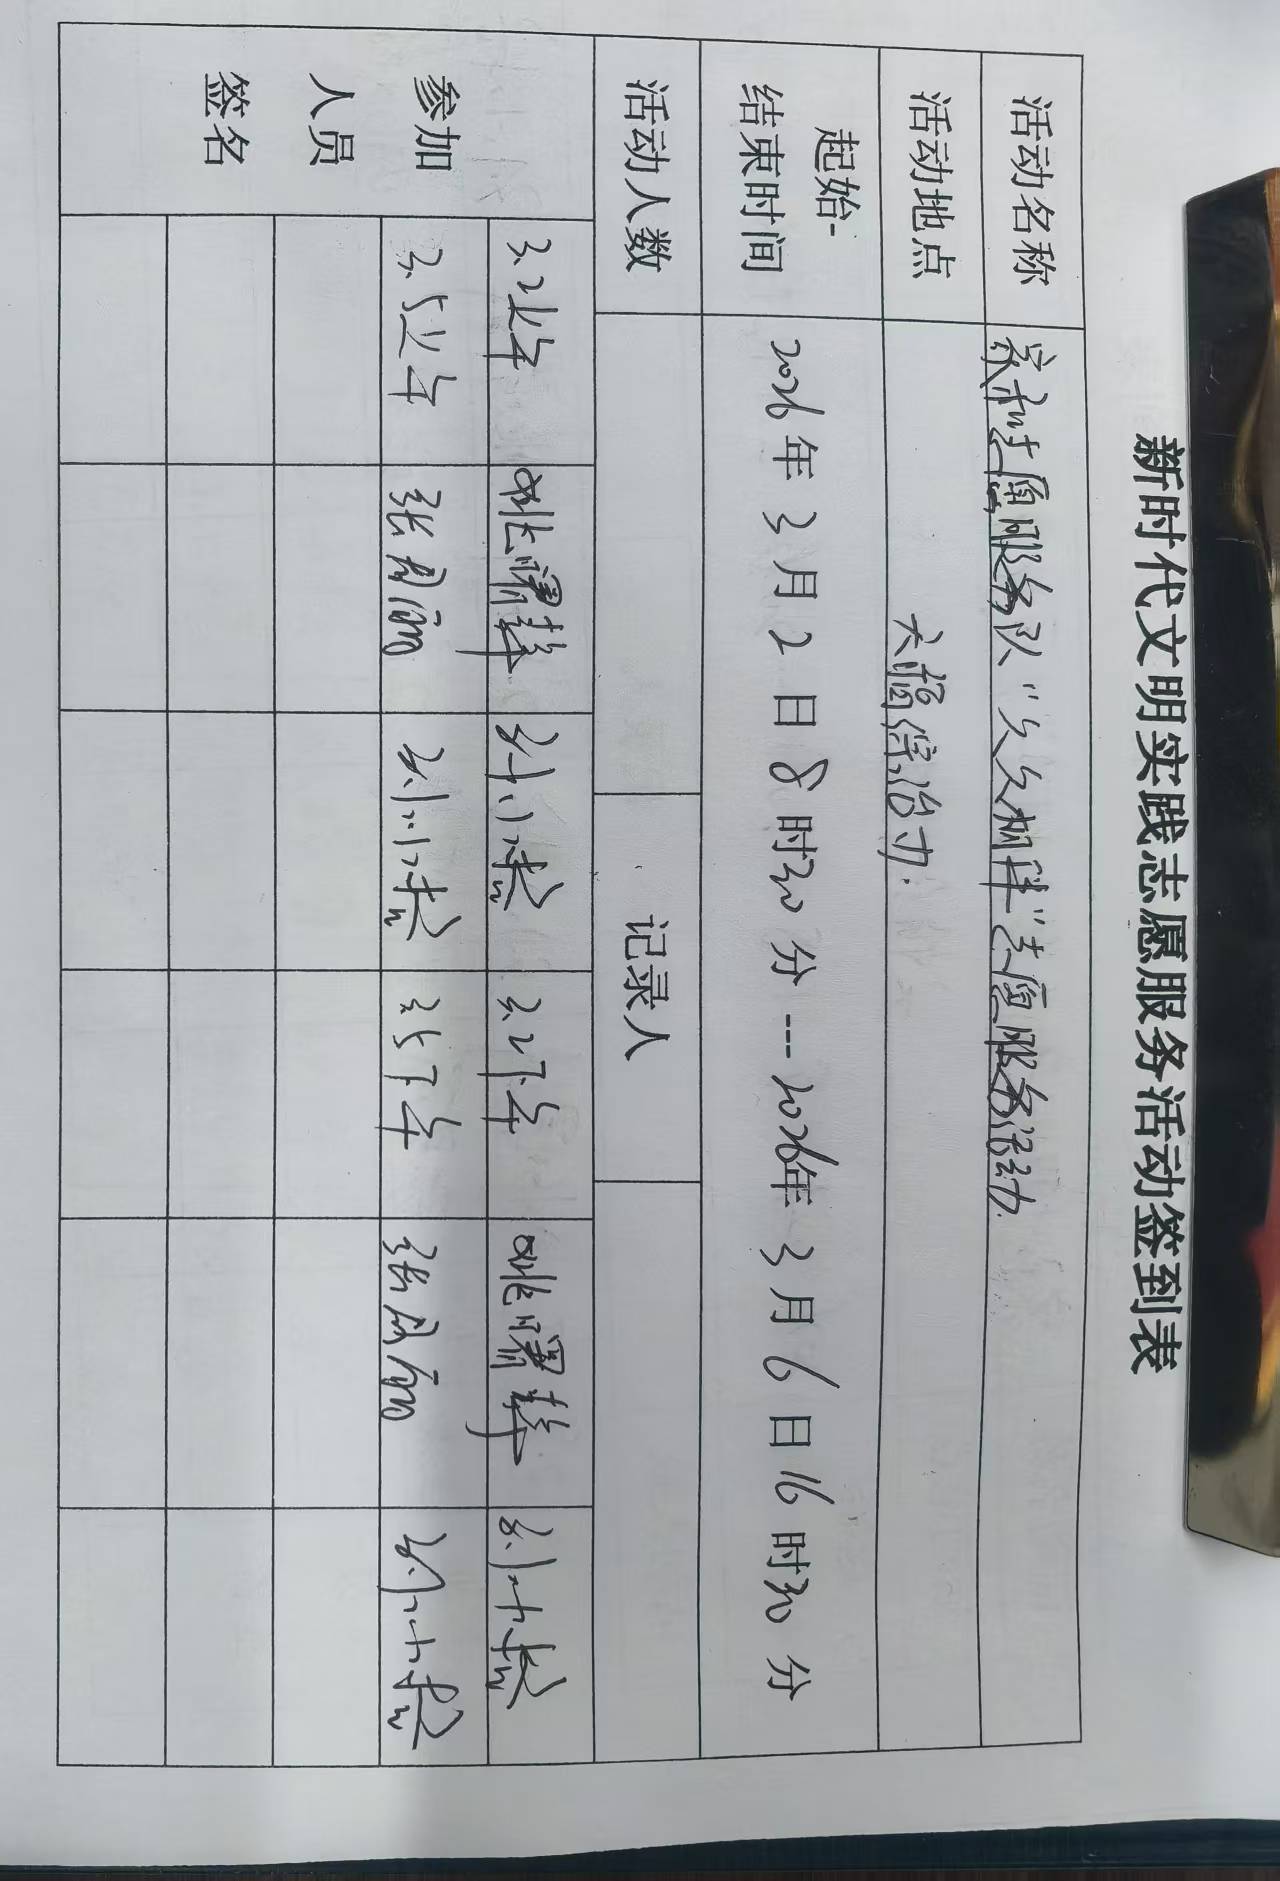 新时代文明实践志愿服务活动签到表
活动名称 志愿服务队“久久相伴”志愿服务活动.
活动地点
起始-
结束时间 2026年3月2日8时30分---2026年3月6日16时30分
活动人数 记录人
参加
人员
签名
3.2上午 姚曙 刘小 3.2下午 姚曙 刘
3.5上午 张 刘小 3.5下午 张 刘